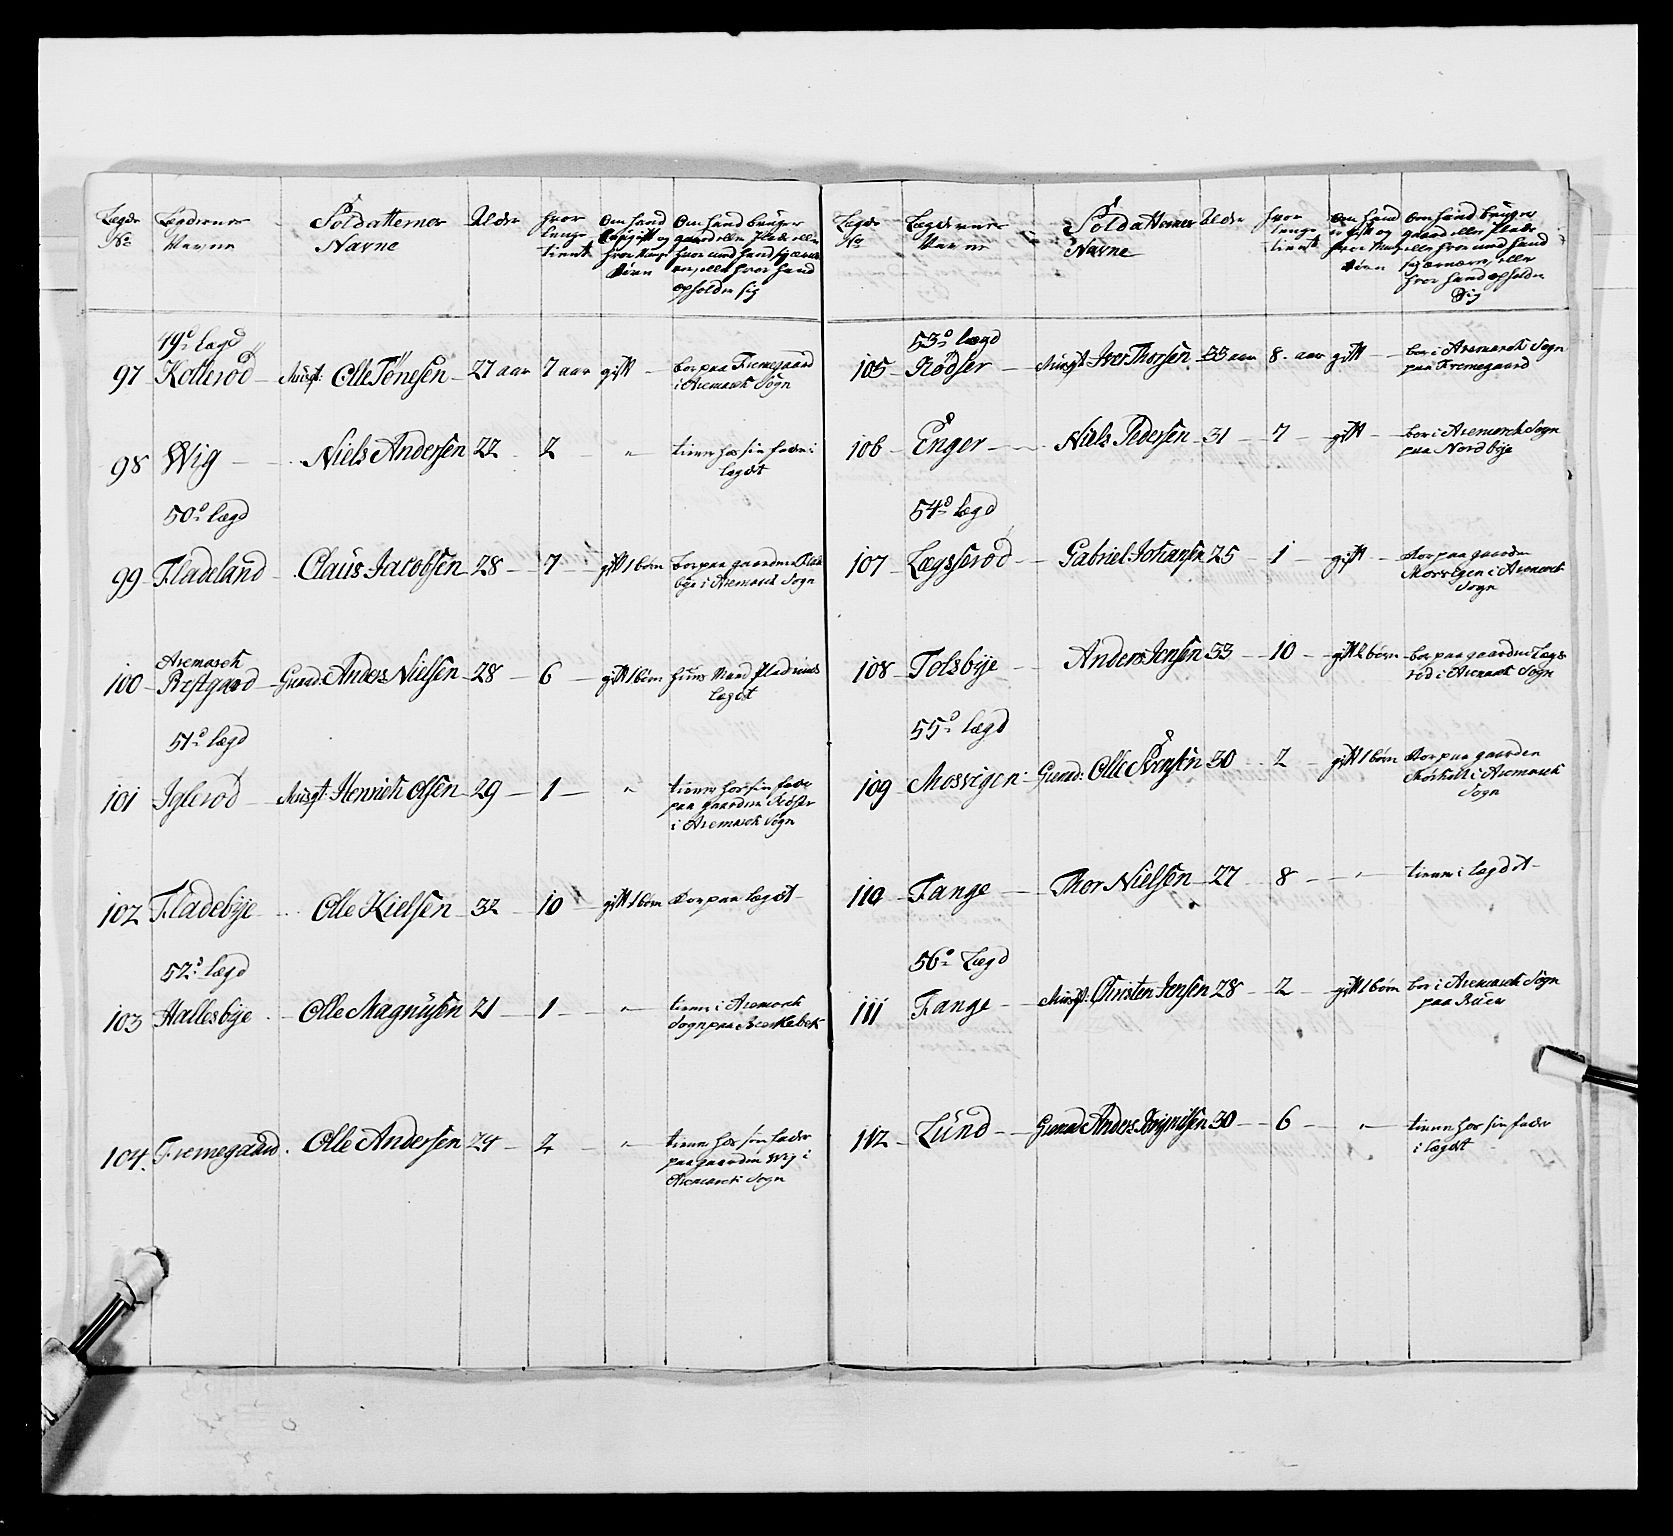 Lægds No
Lægdernes Navne
Soldatternes Navne
Alder
hvor lenge tient
Om hand er gift og hvor mange Børn
Om hand bruger gaard eller Plads eller hvormed hand sig ernærer, eller hvor hand opholder sig
49de lægd
97 Kollerød Musqt: Olle Tønesen 27 aar 7 aar gift boer paa Fremegaard
i Aremarck Sogn
98 Wiig Niels Andersen 22 2 " tiener hos sin fader i
lægdet
50de lægd
99 Fladeland Claus Jacobsen 28 7 gift 1 børn boer paa gaarden Flade
bye i Aremarck Sogn
Aremarck
100 Prestgaard Grenad: Anders Nielsen 28 6 gift 1 børn huus Mand Plads
lægdet
51de lægd
101 Iglerød Musqt: Henrich Olsen 29 1 " tiener hos sin fader
paa gaarden
i Aremarck Sogn
102 Fladebye Olle Kielsen 32 10 gift 1 børn Boer paa lægdet
52de lægd
103 Hallesbye Olle Magnusen 21 1 " tiener i Aremarck
Sogn paa
104 Fremegaard Olle Andersen 24 2 " tiener hos sin fader
paa gaarden Wiig i
Aremarck Sogn
Lægds No
Lægdernes Navne
Soldatternes Navne
Alder
hvor lenge tient
Om hand er gift og hvor mange Børn
Om hand bruger gaard eller Plads eller hvormed hand sig ernærer, eller hvor hand opholder Sig
53de lægd
105 Rødser Musqt: Iver Thorsen 33 aar 8 aar gift boer i Aremarck Sogn
paa Fremegaard
106 Enger Niels Pedersen 31 7 gift boer i Aremarck Sogn
paa Nordbye
54de lægd
107 Lægsserød Gabriel Johansen 25 1 gift Boer paa gaarden
Mosvigen i Aremarck
Sogn
108 Tolsbye Anders Jensen 33 10 gift 2 børn boer paa gaarden Lægs
rød i Aremarck Sogn
55de lægd
109 Mosvigen Grenad: Olle Sørensen 30 2 gift 1 børn Boer paa gaarden
i Aremarck
Sogn
110 Tange Thor Nielsen 27 8 " tiener i lægdet
56de Lægd
111 Tange Musqt: Christen Jensen 28 2 gift 1 børn boer i Aremarck Sogn
paa
112 Lund Grenad Anders 30 6 " tiener hos sin fader
i lægdet